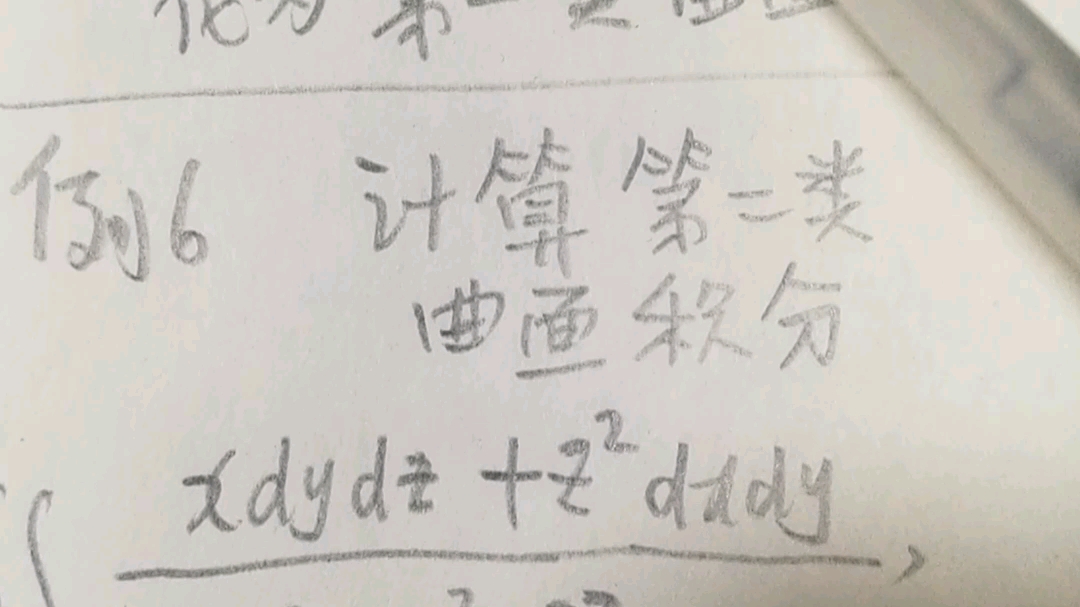 化为第一类曲面
例6 计算第二类
曲面积分
∫ xdydz + z² dxdy ,